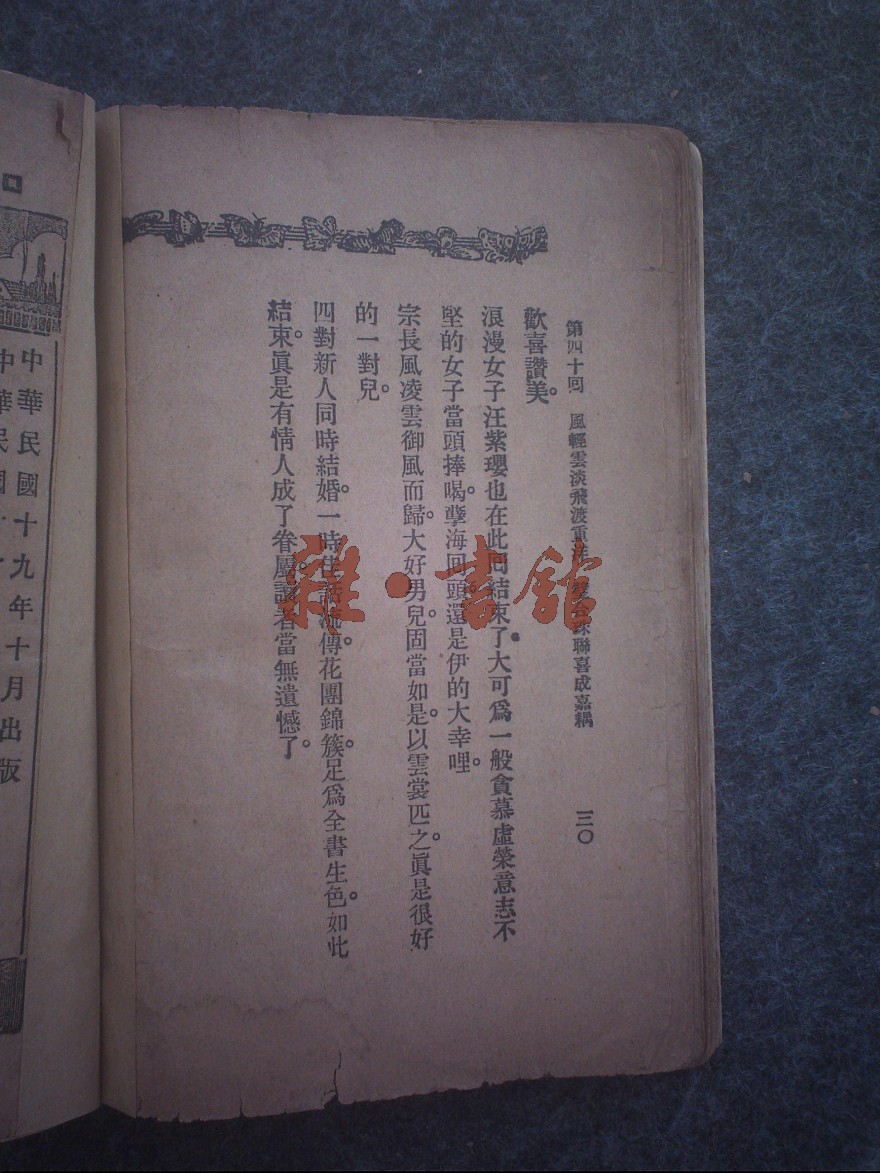 第四十回　風輕雲淡飛渡重洋　璧合珠聯喜成嘉耦　三〇
歡喜讚美。
浪漫女子汪紫瓔也在此回結束了。大可爲一般貪慕虛榮意志不
堅的女子當頭捧喝。孽海回頭。還是伊的大幸哩。
宗長風凌雲御風而歸。大好男兒。固當如是。以雲裳匹之。眞是很好
的一對兒。
四對新人同時結婚。一時佳話流傳。花團錦簇。足爲全書生色。如此
結束。眞是有情人成了眷屬。讀者當無遺憾了。
中華民國十九年十月出版
中華民國
雜·書館